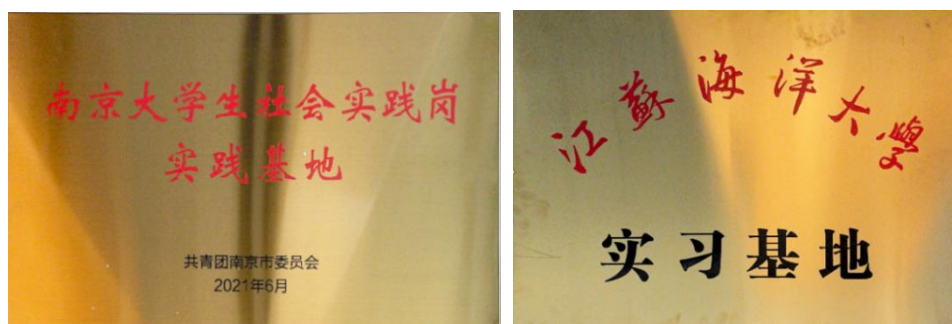 南京大学生社会实践岗
实践基地
共青团南京市委员会
2021年6月
江蘇海洋大學
实习基地